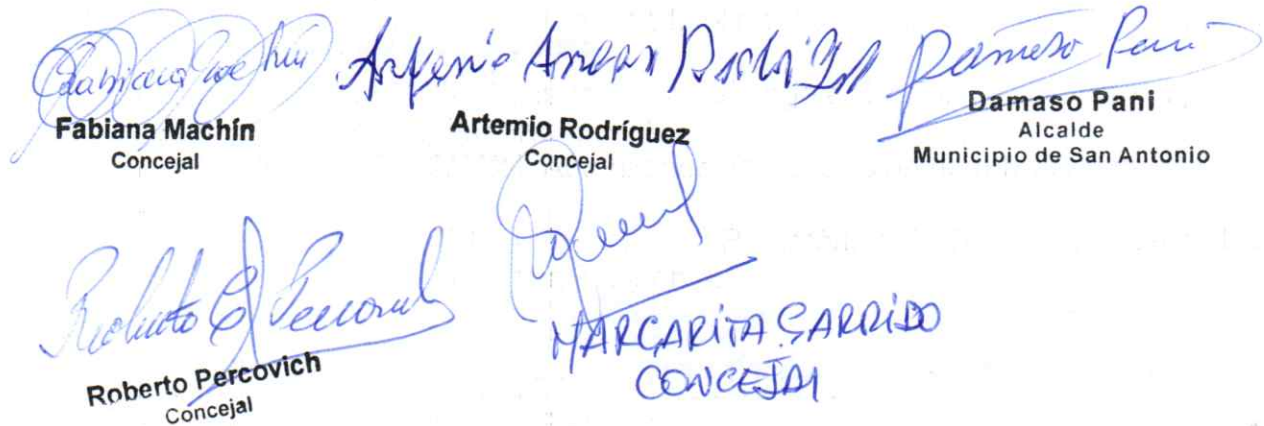 Artemio
Damaso Pani
Fabiana Machín
Concejal
Artemio Rodríguez
Concejal
Damaso Pani
Alcalde
Municipio de San Antonio
Roberto
Roberto Percovich
Concejal
MARGARITA GARRIDO
CONCEJAL